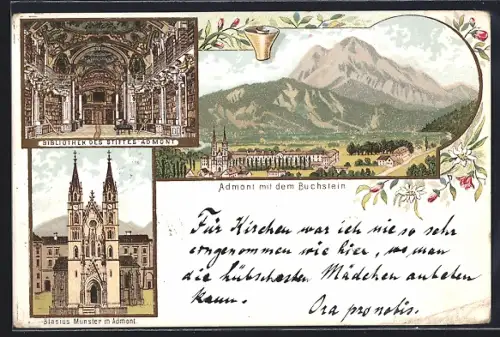 BIBLIOTHEK DES STIFTES ADMONT
Admont mit dem Buchstein
Für Kirchen war ich nie so sehr
eingenommen wie hier, wo man
die hübschesten Mädchen anbeten
kann.
Ora pro nobis.
Blasius Münster in Admont.